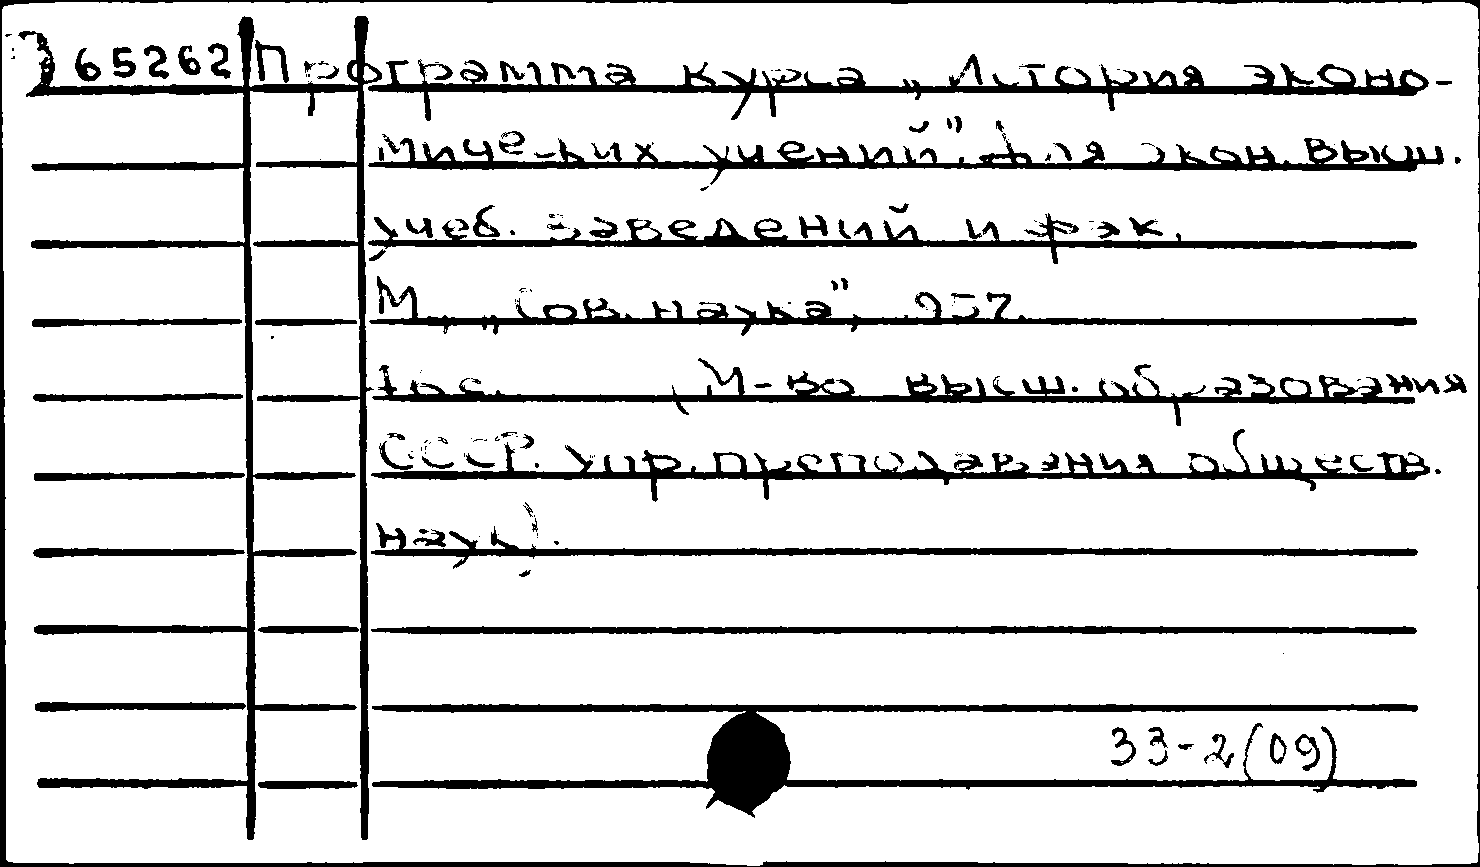 65262 Программа курса „История эконо-
мических учений". Для экон. высш.
учеб. заведений и фак.
М., „Сов. наука", 957.
16 с. (М-во высш. образования
СССР. Упр. преподавания обществ.
наук).
33-2(09)